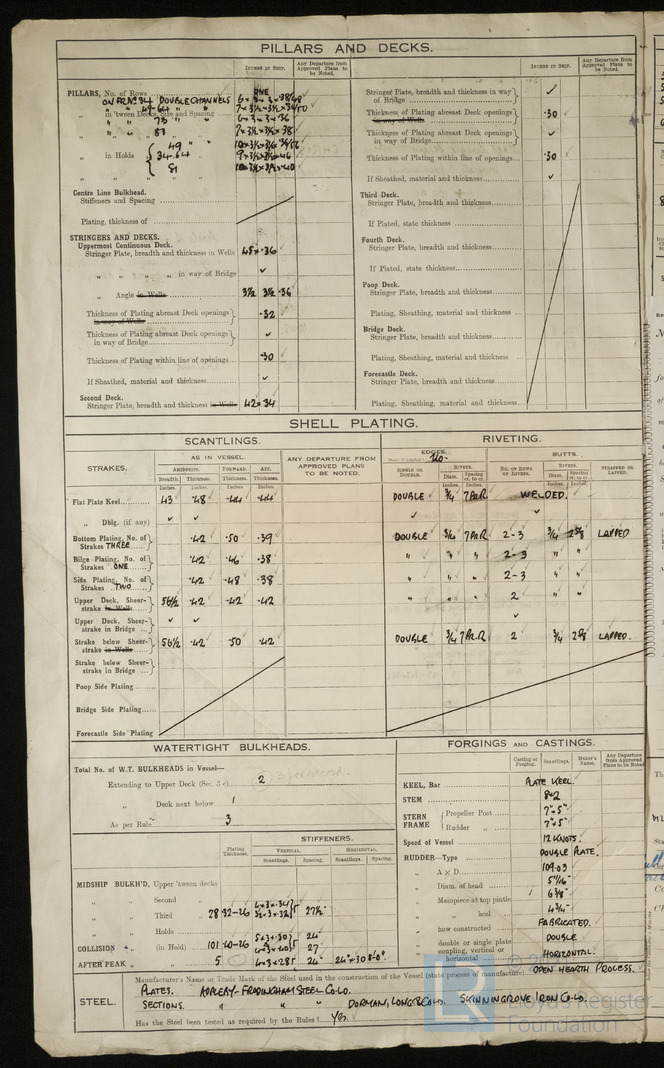 PILLARS AND DECKS.
INCHES IN SHIP. Any Departure from Approved Plans to be Noted.
PILLARS, No. of Rows ONE
ON FR.No 34 DOUBLE CHANNELS
in 'tween Decks, Size and Spacing
in Holds
Centre Line Bulkhead.
Stiffeners and Spacing
Plating, thickness of
STRINGERS AND DECKS.
Uppermost Continuous Deck.
Stringer Plate, breadth and thickness in Wells 45 × ·36
" " " " in way of Bridge ✓
" Angle in Wells 3½ 3½ ·36
Thickness of Plating abreast Deck openings in way of Wells ·32
Thickness of Plating abreast Deck openings in way of Bridge ✓
Thickness of Plating within line of openings ·30
If Sheathed, material and thickness ✓
Second Deck.
Stringer Plate, breadth and thickness in Wells 42 × ·34
INCHES IN SHIP. Any Departure from Approved Plans to be Noted.
Stringer Plate, breadth and thickness in way of Bridge ✓
Thickness of Plating abreast Deck openings in way of Wells ·30
Thickness of Plating abreast Deck openings in way of Bridge ✓
Thickness of Plating within line of openings ·30
If Sheathed, material and thickness ✓
Third Deck.
Stringer Plate, breadth and thickness
If Plated, state thickness
Fourth Deck.
Stringer Plate, breadth and thickness
If Plated, state thickness
Poop Deck.
Stringer Plate, breadth and thickness
Plating, Sheathing, material and thickness
Bridge Deck.
Stringer Plate, breadth and thickness
Plating, Sheathing, material and thickness
Forecastle Deck.
Stringer Plate, breadth and thickness
Plating, Sheathing, material and thickness
SHELL PLATING.
SCANTLINGS. RIVETING.
STRAKES. AS IN VESSEL. ANY DEPARTURE FROM APPROVED PLANS TO BE NOTED. EDGES. No. BUTTS.
AMIDSHIPS. FORWARD. AFT. SINGLE OR DOUBLE. RIVETS. NO. OF ROWS OF RIVETS. RIVETS. STRAPPED OR LAPPED.
Breadth. Thickness. Thickness. Thickness. Diam. Spacing cr. to cr. Diam. Spacing cr. to cr.
Inches. Inches. Inches. Inches. Inches. Inches. Inches. Inches.
Flat Plate Keel 43 ·48 ·44 ·44 DOUBLE ¾ 7 P&R WELDED.
" Dblg. (if any) ✓ ✓ ✓ ✓
Bottom Plating, No. of Strakes THREE ·42 ·50 ·39 DOUBLE ¾ 7 P&R 2-3 ¾ 2⅝ LAPPED
Bilge Plating, No. of Strakes ONE ·42 ·46 ·38 " " " 2-3 " "
Side Plating, No. of Strakes TWO ·42 ·48 ·38 " " " 2-3 " "
Upper Deck, Sheerstrake in Wells 56½ ·42 ·42 ·42 " " " 2 " "
Upper Deck, Sheerstrake in Bridge ✓ ✓ ✓
Strake below Sheerstrake in Wells 56½ ·42 ·50 ·42 DOUBLE ¾ 7 P&R 2 ¾ 2⅝ LAPPED.
Strake below Sheerstrake in Bridge
Poop Side Plating
Bridge Side Plating
Forecastle Side Plating
WATERTIGHT BULKHEADS.
Total No. of W.T. BULKHEADS in Vessel—
Extending to Upper Deck (Sec. 3 c) 2
" Deck next below 1
As per Rule 3
Plating Thickness. STIFFENERS.
VERTICAL. HORIZONTAL.
Scantlings. Spacing. Scantlings. Spacing.
MIDSHIP BULKH'D, Upper 'tween decks
" " Second "
" " Third " 27½"
" " Holds
COLLISION " (in Hold) 27
AFTER PEAK " " 24"
FORGINGS AND CASTINGS.
Casting or Forging. Scantlings. Maker's Name. Any Departure from Approved Plans to be Noted
KEEL, Bar PLATE KEEL.
STEM 8×2
STERN FRAME Propeller Post 7"×5"
Rudder " 7"×5"
Speed of Vessel 12 KNOTS.
RUDDER—Type DOUBLE PLATE.
" A × D 109.03
" Diam. of head
" Mainpiece at top pintle 6⅜"
" " heel 4¾"
" how constructed FABRICATED.
" double or single plate DOUBLE
" coupling, vertical or horizontal HORIZONTAL.
STEEL.
Manufacturer's Name or Trade Mark of the Steel used in the construction of the Vessel (state process of manufacture) OPEN HEARTH PROCESS.
PLATES. APPLEBY-FRODINGHAM STEEL Co LD.
SECTIONS. " " " DORMAN, LONG & Co LD. SKINNINGROVE IRON Co LD.
Has the Steel been tested as required by the Rules? Yes.
Lloyd's Register
Foundation